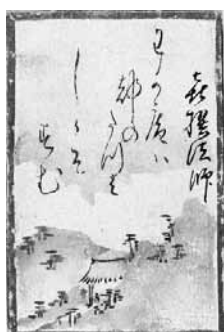 喜撰法師
わか庵ハ
都の
たつみ
しかそ
すむ